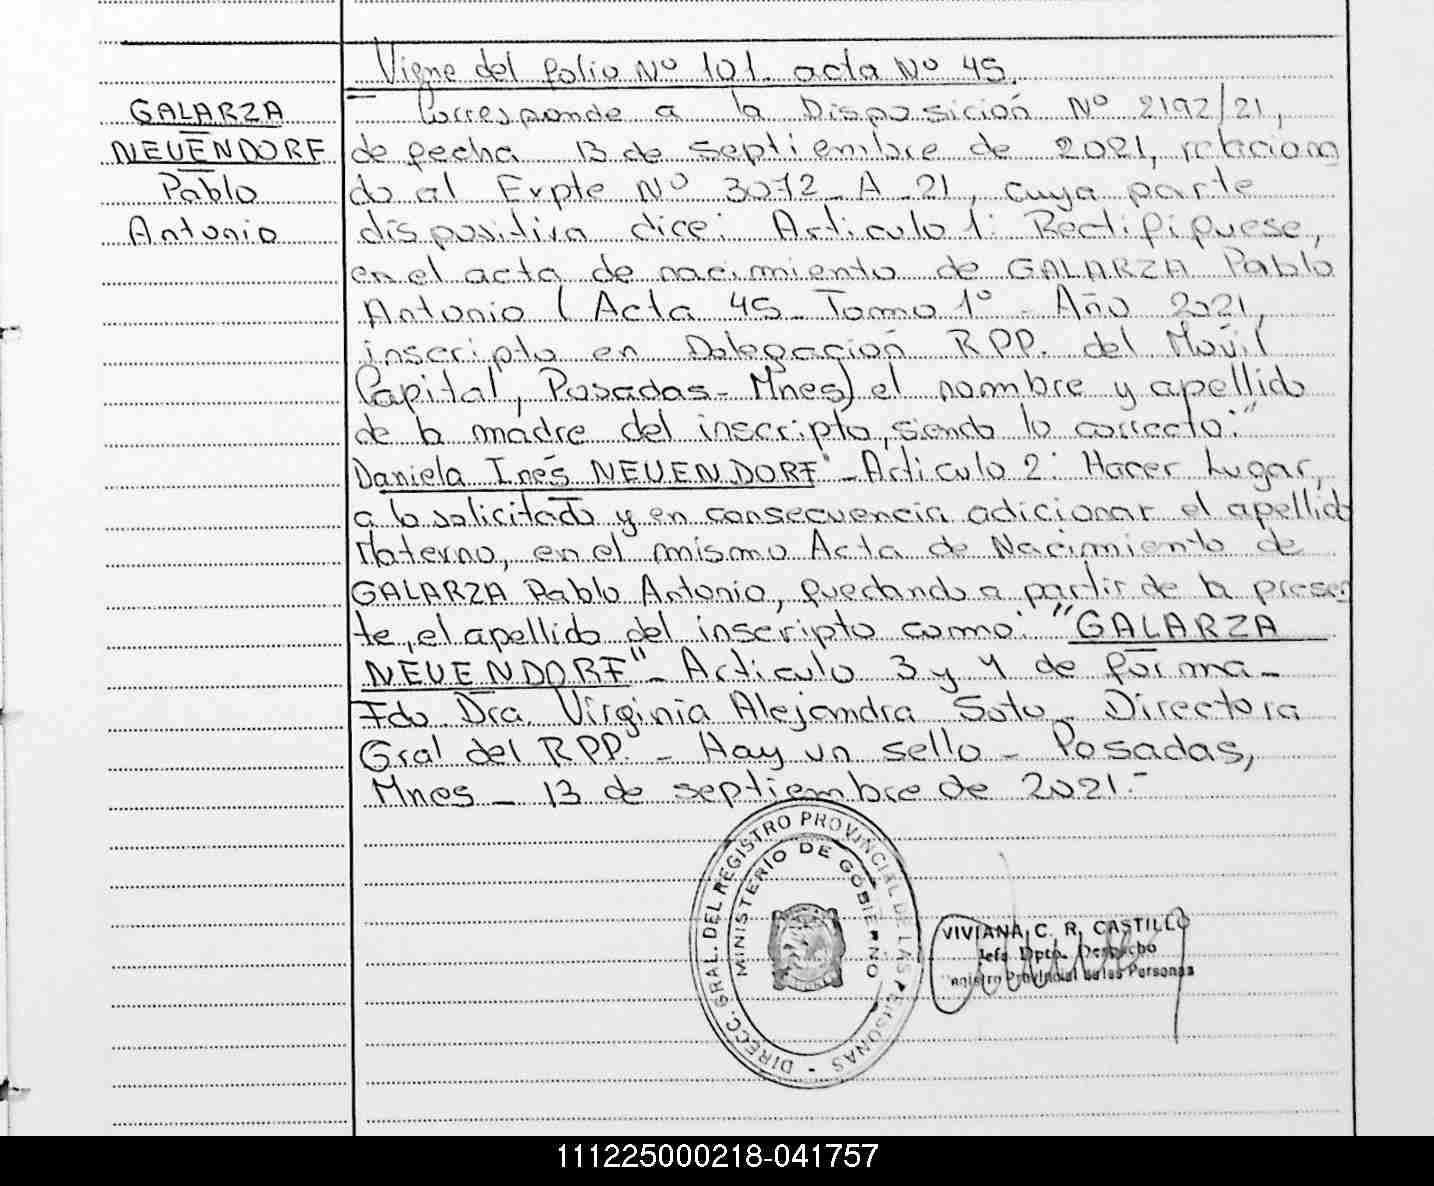 Viene del folio Nº 101. acta Nº 45.
GALARZA
NEUENDORF
Pablo
Antonio
Corresponde a la Disposición Nº 2192/21,
de fecha 13 de septiembre de 2021, relaciona
do al Expte Nº 3072_A_21, cuya parte
dispositiva dice: Articulo 1: Rectifiquese,
en el acta de nacimiento de GALARZA Pablo
Antonio (Acta 45_ Tomo 1º - Año 2021,
inscripto en Delegación RPP. del Móvil
Capital, Posadas- Mnes) el nombre y apellido
de la madre del inscripto, siendo lo correcto:"
Daniela Inés NEUENDORF"_ Articulo 2: Hacer Lugar,
a lo solicitado y en consecuencia adicionar el apellido
Materno, en el mismo Acta de Nacimiento de
GALARZA Pablo Antonio, quedando a partir de la presen
te, el apellido del inscripto como: "GALARZA
NEUENDORF"_ Articulo 3 y 4 de forma_
Fdo Dra. Virginia Alejandra Soto_ Directora
Gral del RPP."_ Hay un sello_ Posadas,
Mnes_ 13 de septiembre de 2021.-
DIRECC. GRAL. DEL REGISTRO PROVINCIAL DE LAS PERSONAS -
MINISTERIO DE GOBIERNO
VIVIANA C. R. CASTILLO
Jefa Dpto. Despacho
Provincial de las Personas
111225000218-041757